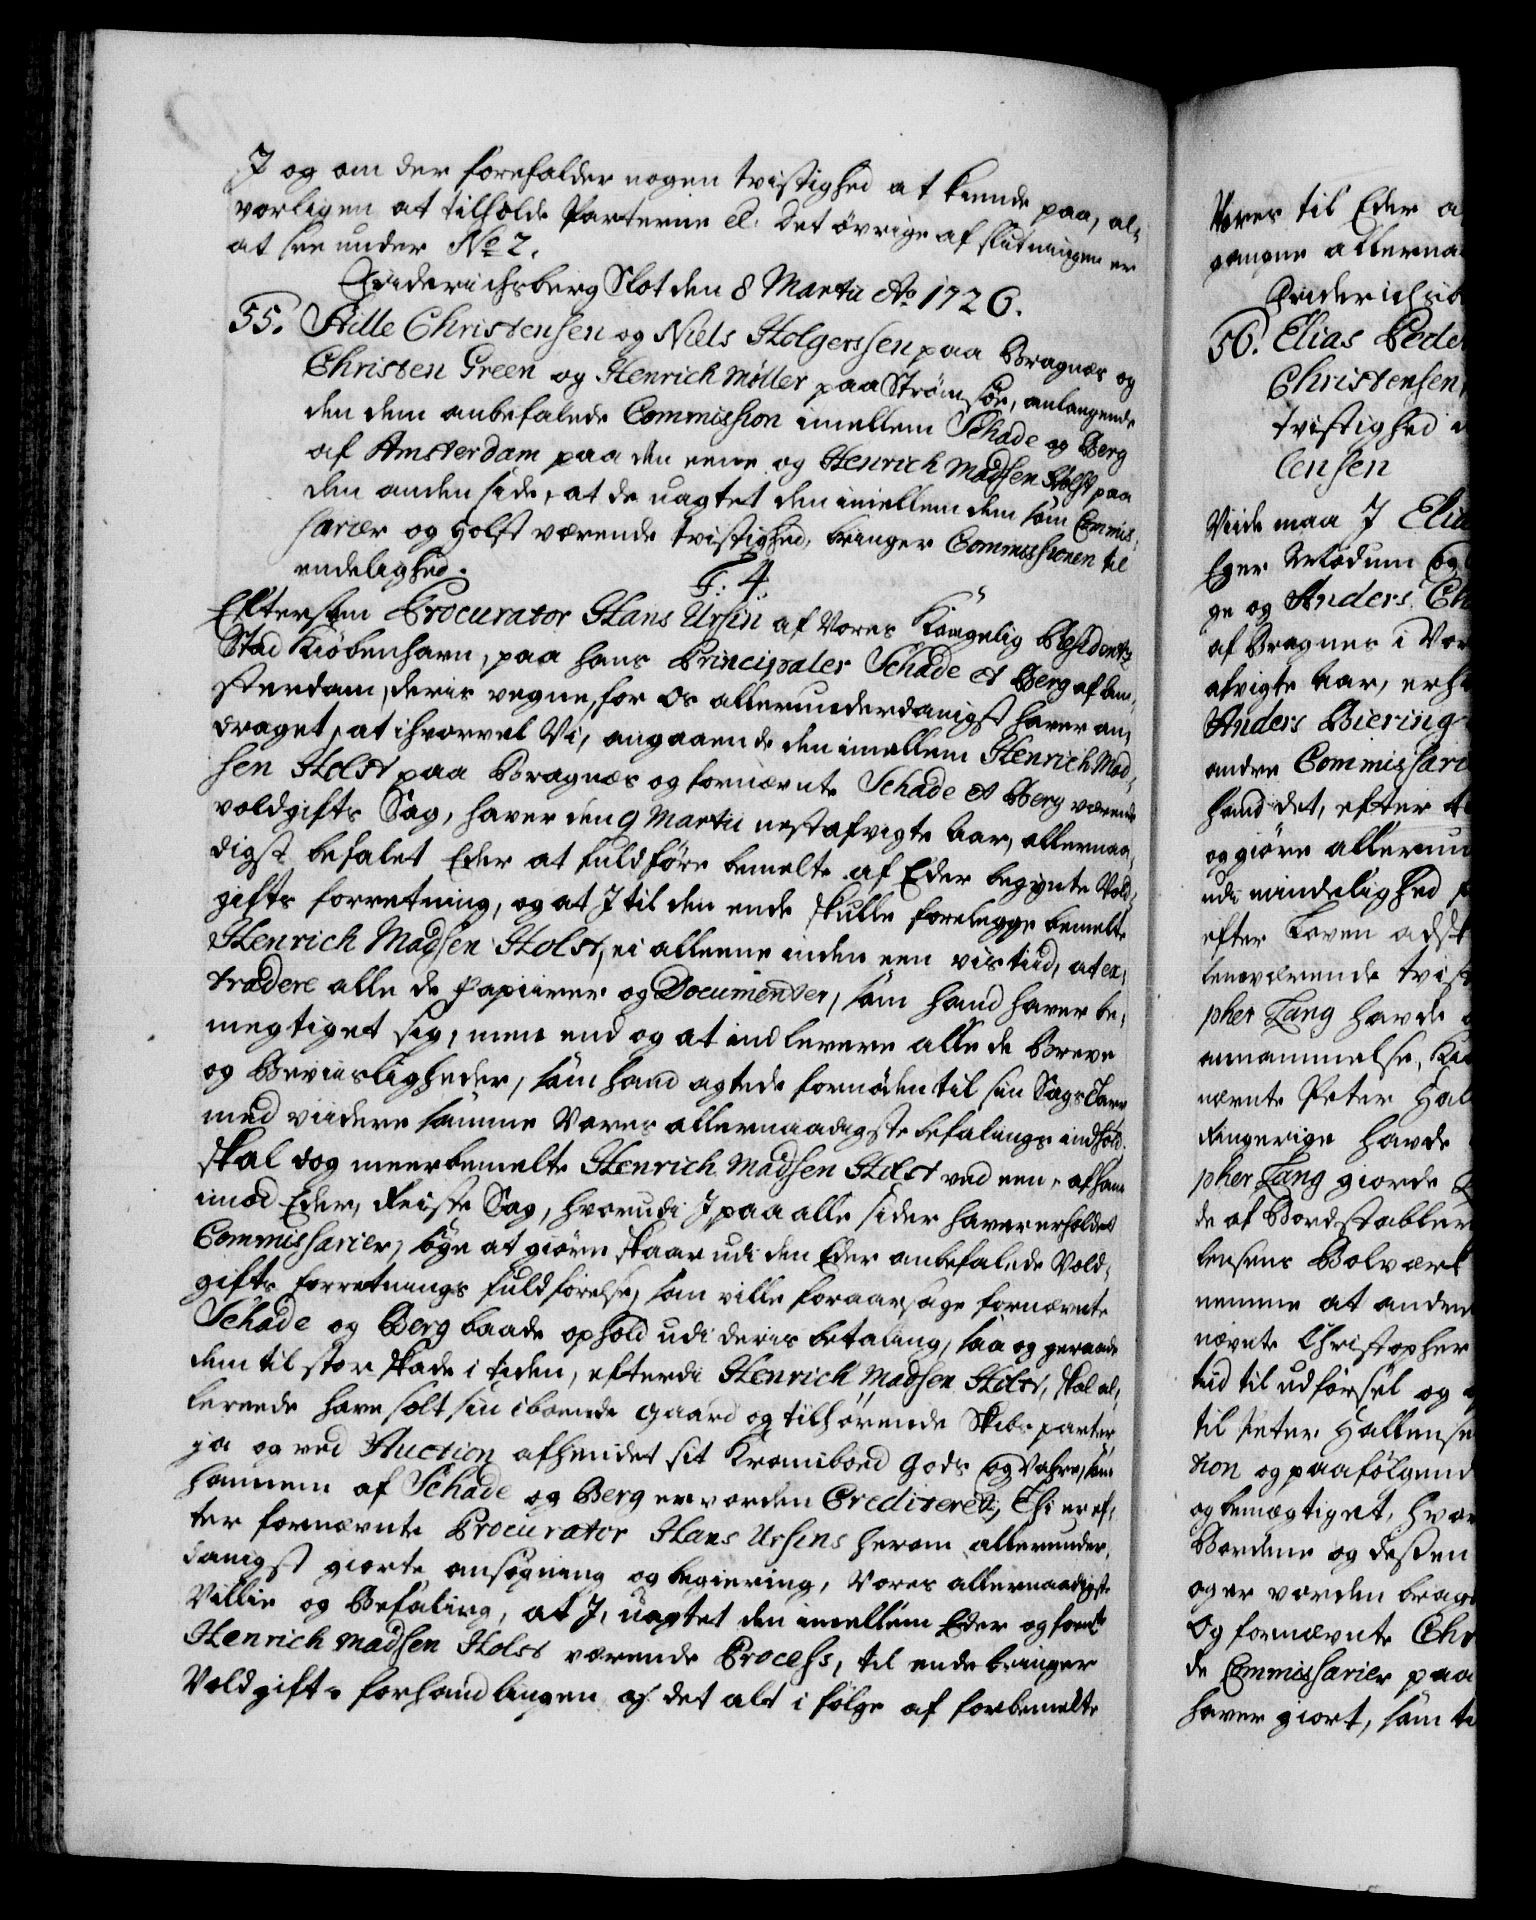 J og om der forefalder nogen tvistighed at kiende paa, al-
vorligen at tilholde Parterne &. Det øvrige af slutningen er
at see under No 2.
Friderichsberg Slot den 8 Martii Ao 1726.
55. Stille Christensen og Niels Holgerssen paa Bragnæs og
Christen Green og Henrich Møller paa Strømsøe, anlangende
den dem anbefalede Commission imellem Schade og Berg
af Amsterdam paa den eene og Henrich Madsen Holst paa
den anden side, at de uagtet den imellem dem som Commis-
sarier og Holst værende tvistighed, bringer Commissionen til
endelighed.
F. 4.
Eftersom Procurator Hans Ursin af Vores Kongelig Residentz
Stad Kiøbenhavn, paa hans Principaler Schade et Berg af Am-
sterdam, deris vegne, for Os allerunderdanigst haver an-
draget, at ihvorvel Vi, angaaende den imellem Henrich Mad-
sen Holst paa Bragnæs og fornævnte Schade et Berg værende
voldgifts Sag, haver den 9 Martii nestafvigte Aar, allernaa-
digst befalet Eder at fuldføre bemelte af Eder begynte Vold-
gifts forretning, og at J til den ende skulle forelegge bemelte
Henrich Madsen Holst, ei alleene inden een vis tiid, at ex-
tradere alle de Papiirer og Documenter, som hand haver be-
megtiget sig, men end og at indlevere alle de Breve
og Beviisligheder, som hand agtede fornøden til sin Sags Tarv
med viidere samme Vores allernaadigste befalings indhold.
skal dog meerbemelte Henrich Madsen Holst ved een, af ham
imod Eder, Reiste Sag, hvorudi J paa alle sider haver erholdet
Commissarier, søge at giøre skaar udi den Eder anbefalede Vold-
gifts forretnings fuldførelse, som ville foraarsage fornævnte
Schade og Berg baade ophold udi deris betaling, saa og geraade
dem til stor skade i tiden, efterdi Henrich Madsen Holst, skal al-
lereede have solt sin iboende gaard og tilhørende Skibs parter,
ja og ved Auction afhendet sit Kramboed Gods og Vahre, som
hannem af Schade og Berg er vorden Crediteret; Thi er ef-
ter fornævnte Procurator Hans Ursins herom allerunder-
danigst giorte ansøgning og begiering, Vores allernaadigste
Villie og Befaling, at J, uagtet den imellem Eder og fornte
Henrich Madsen Holst værende Process, til ende bringer
Voldgifts forhandlingen og det alt i følge af forbemelte
Vores til Eder a
gangne allernaa
Friderichsb
56. Elias Peder
Christensen,
tvistighed i
lensen
Viide maa J Elia
Eger Modum og
ge og Anders Ch
af Bragnes i Vor
afvigte Aar, erh
Anders Biering
andre Commissari
hand det, efter
og giøre allerun
udi mindelighed
efter Loven adsk
leneværende tvis
pher Lang havde
annammelse,
nævnte Peter Hal
Ringerige havde
pher Lang giorde
de af Bordstabler
lensens Bolværk
nemme at andre
nævnte Christopher
tiid til udførsel og
til Peter Hallense
tion og paafølgend
og bemægtiget, hvor
Bordene og dessen
og er vorden brag
Og fornævnte Chr
de Commissarier paa
haver giort, som ti